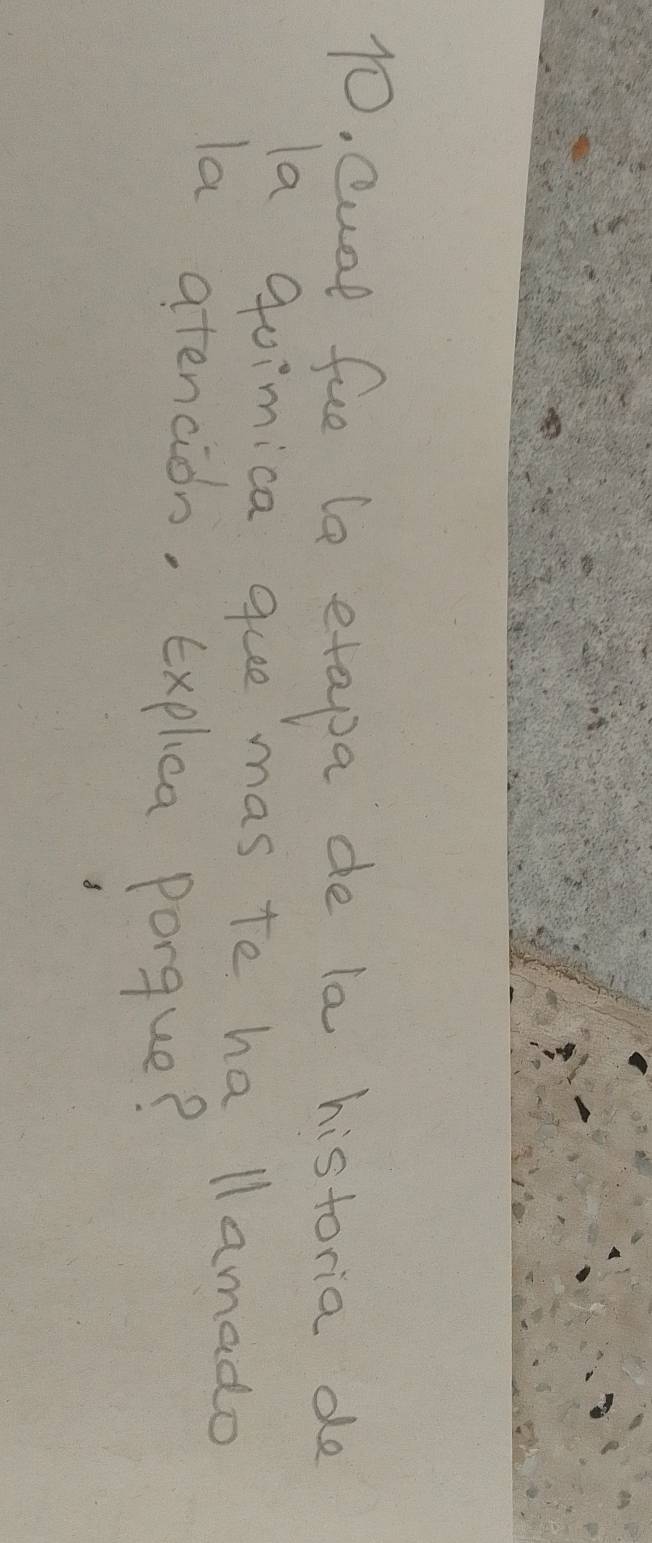 10. Cual fue la etapa de la historia de
la quimica que mas te ha llamado
la atención. Explica porque?